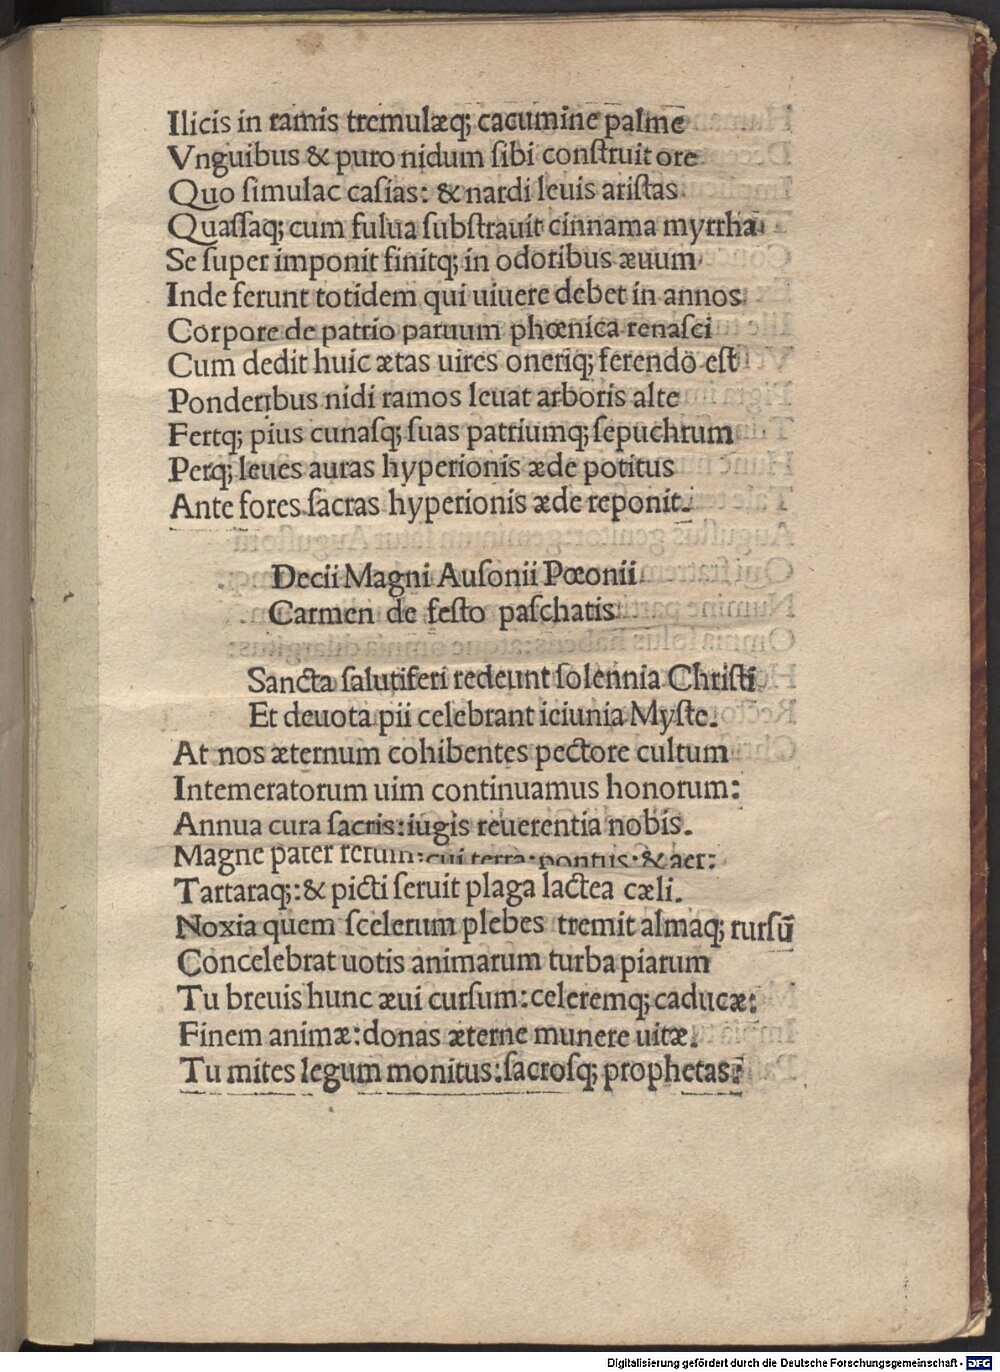 Ilicis in ramis tremulæq; cacumine palme
Vnguibus & puro nidum ſibi conſtruit ore
Quo ſimulac caſias: & nardi leuis ariſtas
Quaſſaq; cum fulua ſubſtrauit cinnama myrrha
Se ſuper imponit finitq; in odoribus æuum
Inde ferunt totidem qui uiuere debet in annos
Corpore de patrio paruum phœnica renaſci
Cum dedit huic ætas uires oneriq; ferendo eſt
Ponderibus nidi ramos leuat arboris alte
Fertq; pius cunaſq; ſuas patriumq; ſepuchrum
Perq; leues auras hyperionis æde potitus
Ante fores ſacras hyperionis æde reponit.
Decii Magni Auſonii Pœonii
Carmen de feſto paſchatis
Sancta ſalutiferi redeunt ſolennia Chriſti
Et deuota pii celebrant ieiunia Myſte.
At nos æternum cohibentes pectore cultum
Intemeratorum uim continuamus honorum:
Annua cura ſacris: iugis reuerentia nobis.
Magne pater rerum: cui terra· pontus· & aer:
Tartaraq;: & picti ſeruit plaga lactea cæli.
Noxia quem ſcelerum plebes tremit almaq; rurſū
Concelebrat uotis animarum turba piarum
Tu breuis hunc æui curſum: celeremq; caducæ:
Finem animæ: donas æterne munere uitæ.
Tu mites legum monitus: ſacroſq; prophetas:
Digitalisierung gefördert durch die Deutsche Forschungsgemeinschaft - DFG